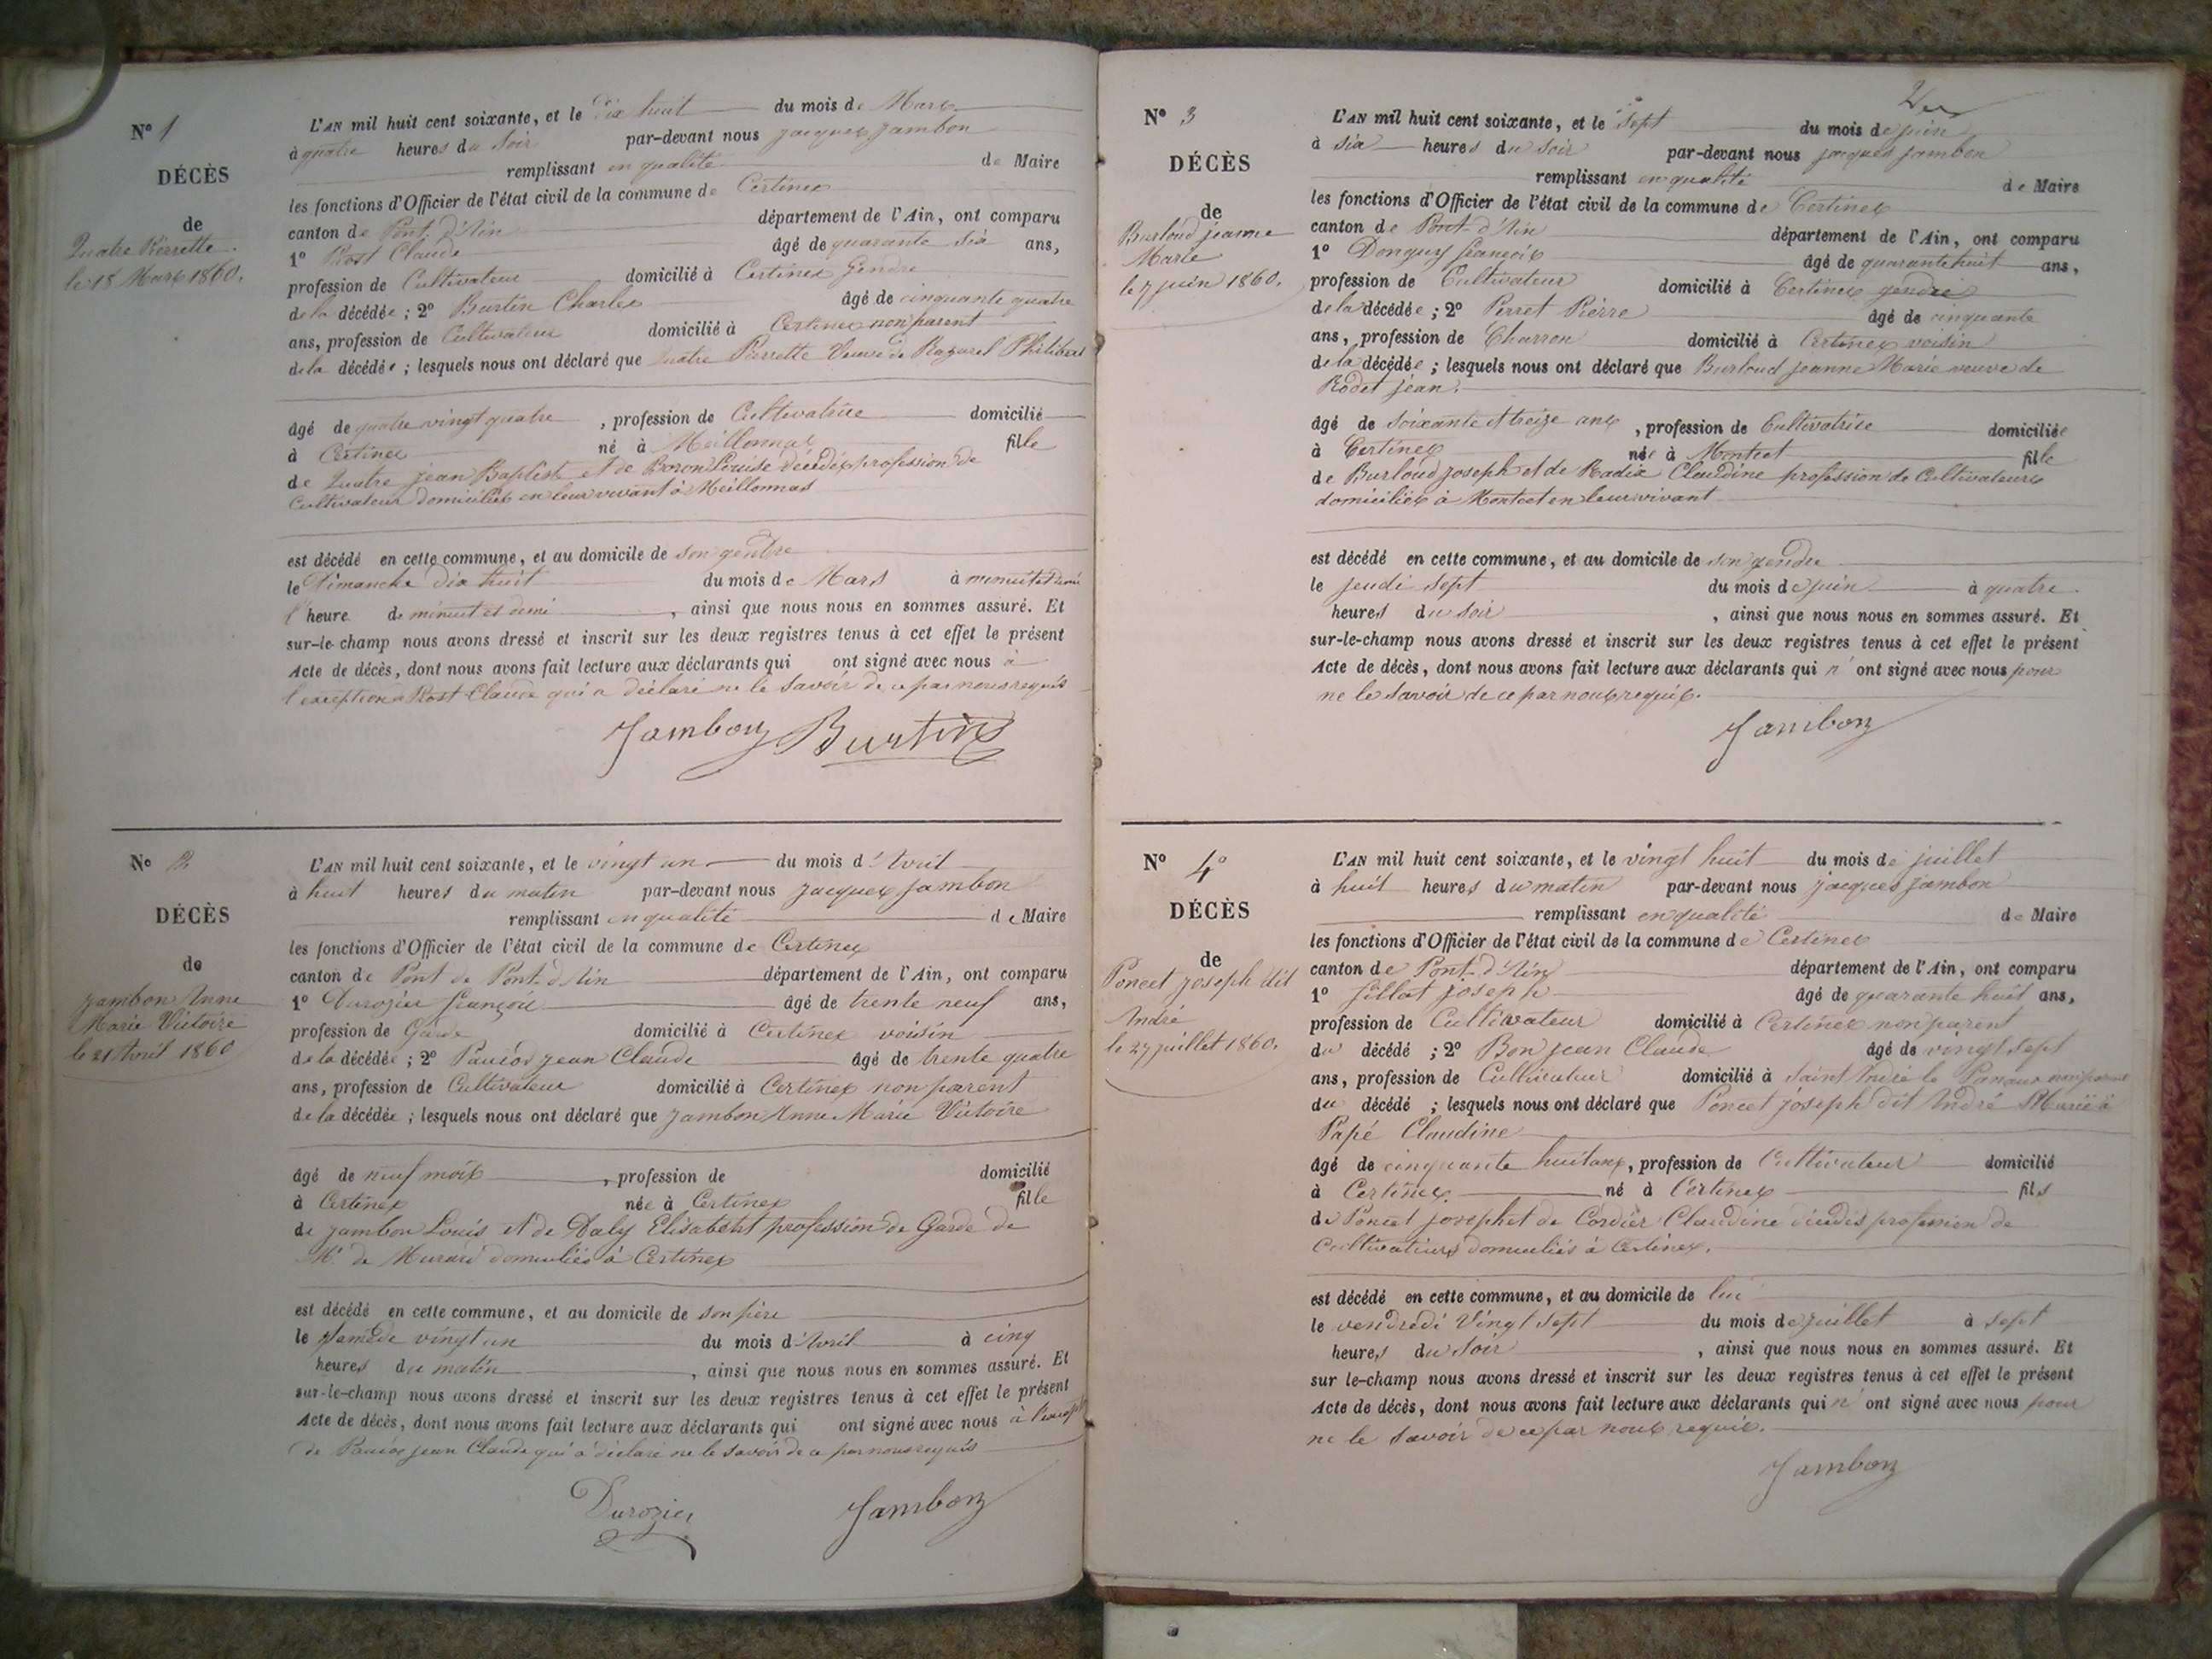 N° 1
DÉCÈS
de
Quatre Pierrette
le 18 Mars 1860.
L'AN mil huit cent soixante, et le Dix huit du mois de Mars
à quatre heures du Soir par-devant nous jacques jambon
remplissant en qualité de Maire
les fonctions d'Officier de l'état civil de la commune de Certines
canton de Pont d'Ain département de l'Ain, ont comparu
1° Claude âgé de quarante Six ans,
profession de Cultivateur domicilié à Certines Gendre
de la décédée ; 2° Burtin Charles âgé de cinquante quatre
ans, profession de Cultivateur domicilié à Certines non parent
de la décédée ; lesquels nous ont déclaré que Quatre Pierrette Veuve de Philibert
âgé de quatre vingt quatre , profession de Cultivatrice domicilié
à Certines né à Meillonnas fille
de Quatre jean Baptiste et de Louise décédés profession de
Cultivateur domiciliés en leur vivant à Meillonnas
est décédé en cette commune, et au domicile de son gendre
le Dimanche dix huit du mois de Mars à minuit et demi
l'heure de minuit et demi , ainsi que nous nous en sommes assuré. Et
sur-le-champ nous avons dressé et inscrit sur les deux registres tenus à cet effet le présent
Acte de décès, dont nous avons fait lecture aux déclarants qui ont signé avec nous à
l'exception Claude qui a déclaré ne le Savoir de ce par nous requis
Jambon Burtin
N° 2
DÉCÈS
de
jambon Anne
Marie Victoire
le 21 Avril 1860
L'AN mil huit cent soixante, et le vingt un du mois d'Avril
à huit heures du matin par-devant nous jacques jambon
remplissant en qualité de Maire
les fonctions d'Officier de l'état civil de la commune de Certines
canton de Pont de Pont d'Ain département de l'Ain, ont comparu
1° Durozier françois âgé de trente neuf ans,
profession de Garde domicilié à Certines voisin
de la décédée ; 2° jean Claude âgé de trente quatre
ans, profession de Cultivateur domicilié à Certines non parent
de la décédée ; lesquels nous ont déclaré que jambon Anne Marie Victoire
âgé de neuf mois , profession de domicilié
à Certines née à Certines fille
de jambon Louis et de Daly Elisabeth profession de Garde de
Mr de Murard domiciliés à Certines
est décédé en cette commune, et au domicile de son père
le Samedi vingt un du mois d'Avril à cinq
heures du matin , ainsi que nous nous en sommes assuré. Et
sur-le-champ nous avons dressé et inscrit sur les deux registres tenus à cet effet le présent
Acte de décès, dont nous avons fait lecture aux déclarants qui ont signé avec nous à
de jean Claude qui a déclaré ne le Savoir de ce par nous requis
Durozier Jambon
N° 3
DÉCÈS
de
Burloud jeanne
Marie
le 7 juin 1860.
L'AN mil huit cent soixante, et le Sept du mois de juin
à Six heures du Soir par-devant nous jacques jambon
remplissant en qualité de Maire
les fonctions d'Officier de l'état civil de la commune de Certines
canton de Pont-d'Ain département de l'Ain, ont comparu
1° Donguy françois âgé de quarante huit ans,
profession de Cultivateur domicilié à Certines gendre
de la décédée ; 2° Perret Pierre âgé de cinquante
ans, profession de Charron domicilié à Certines voisin
de la décédée ; lesquels nous ont déclaré que Burloud jeanne Marie veuve de
Rodet jean.
âgé de soixante et treize ans , profession de Cultivatrice domiciliée
à Certines née à Montcet fille
de Burloud joseph et de Radix Claudine profession de Cultivateurs
domiciliés à Montcet en leur vivant
est décédé en cette commune, et au domicile de son gendre
le jeudi sept du mois de juin à quatre
heures du Soir , ainsi que nous nous en sommes assuré. Et
sur-le-champ nous avons dressé et inscrit sur les deux registres tenus à cet effet le présent
Acte de décès, dont nous avons fait lecture aux déclarants qui n'ont signé avec nous pour
ne le Savoir de ce par nous requis.
Jambon
N° 4°
DÉCÈS
de
Poncet joseph dit
André
le 27 juillet 1860.
L'AN mil huit cent soixante, et le vingt huit du mois de juillet
à huit heures du matin par-devant nous jacques jambon
remplissant en qualité de Maire
les fonctions d'Officier de l'état civil de la commune de Certines
canton de Pont-d'Ain département de l'Ain, ont comparu
1° joseph âgé de quarante huit ans,
profession de Cultivateur domicilié à Certines non parent
du décédé ; 2° Bon jean Claude âgé de vingt sept
ans, profession de Cultivateur domicilié à Saint André le Panoux non parent
du décédé ; lesquels nous ont déclaré que Poncet joseph dit André Marié à
Papé Claudine
âgé de cinquante huit ans, profession de Cultivateur domicilié
à Certines né à Certines fils
de Poncet joseph et de Cordier Claudine décédés profession de
Cultivateurs domiciliés à Certines.
est décédé en cette commune, et au domicile de lui
le vendredi Vingt sept du mois de juillet à sept
heures du Soir , ainsi que nous nous en sommes assuré. Et
sur le-champ nous avons dressé et inscrit sur les deux registres tenus à cet effet le présent
Acte de décès, dont nous avons fait lecture aux déclarants qui n'ont signé avec nous pour
ne le savoir de ce par nous requis.
Jambon